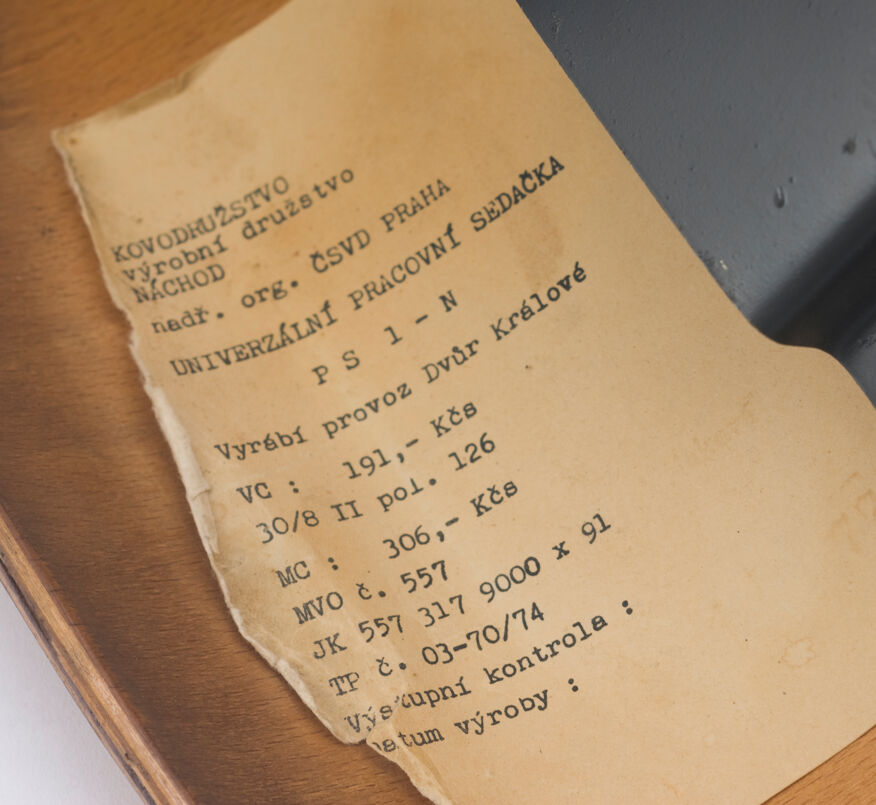 KOVODRUŽSTVO
výrobní družstvo
NÁCHOD
nadř. org. ČSVD PRAHA
UNIVERZÁLNÍ PRACOVNÍ SEDAČKA
P S 1 - N
Vyrábí provoz Dvůr Králové
VC : 191,- Kčs
30/8 II pol. 126
MC : 306,- Kčs
MVO č. 557
JK 557 317 9000 x 91
TP č. 03-70/74
Výstupní kontrola :
Datum výroby :